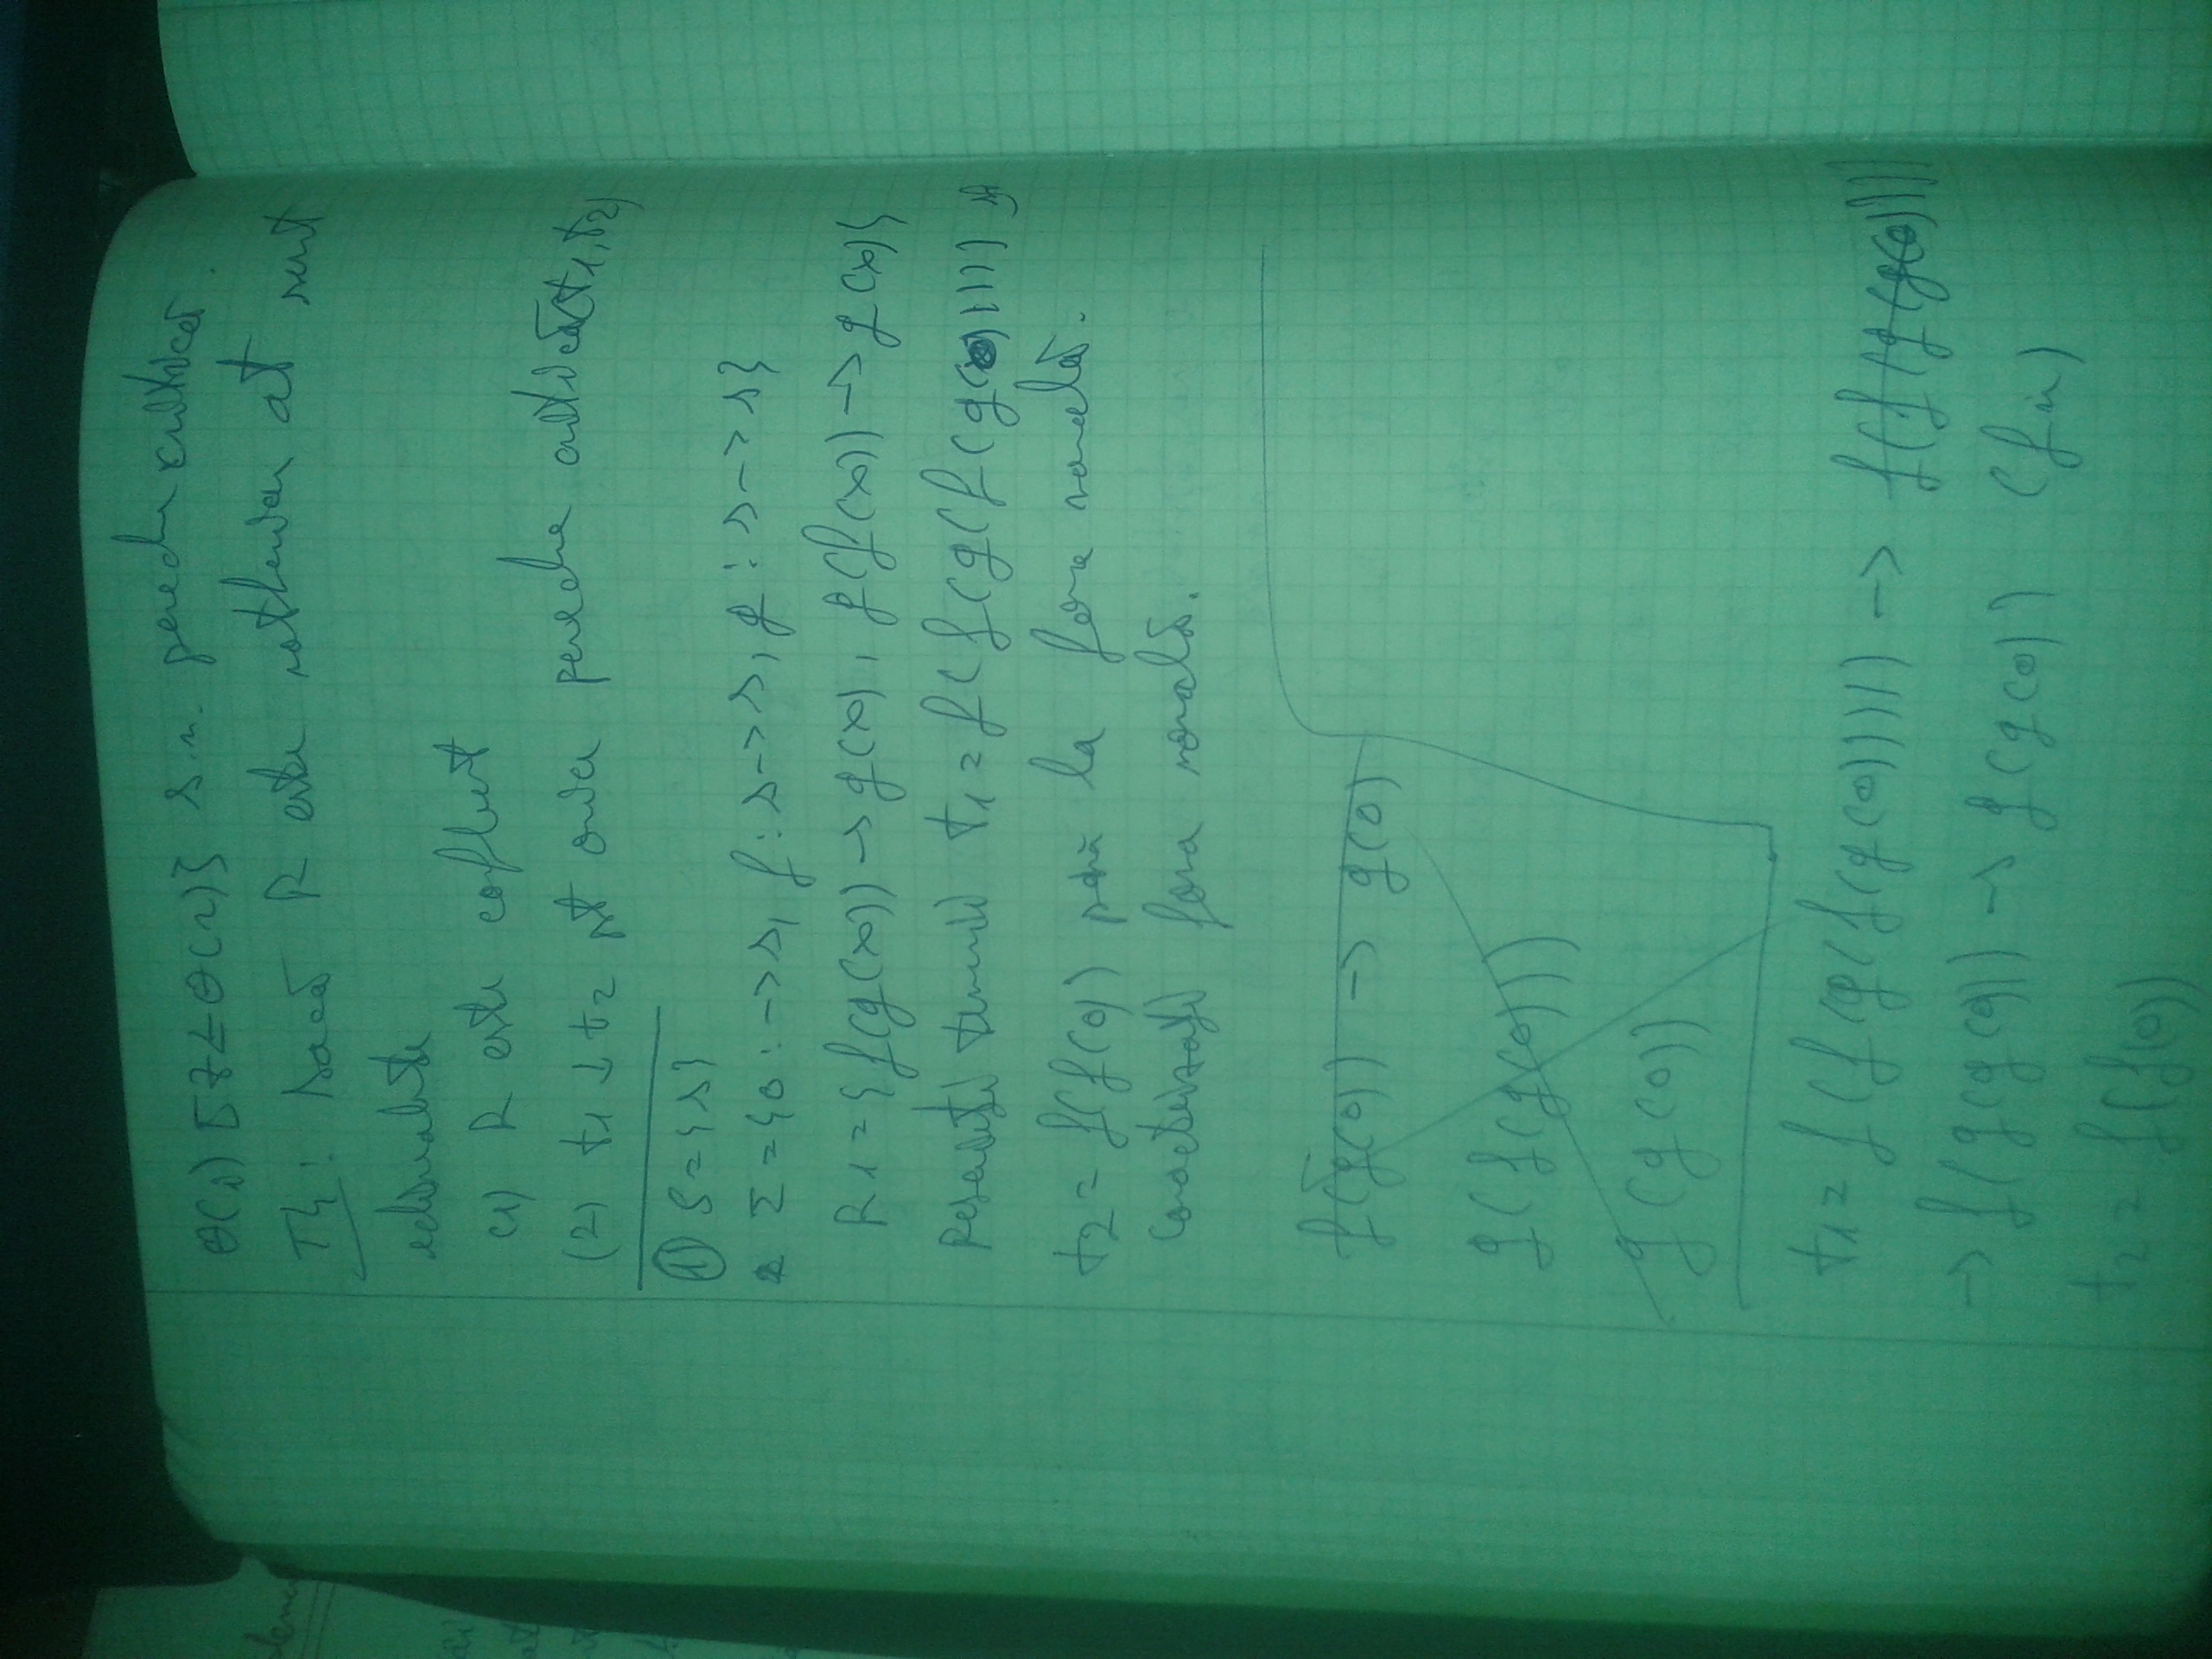 θ(l)[z←θ(r)]} s.n. pereche critică.
Th: Dacă R este noetherian at sunt
echivalente
(1) R este confluent
(2) t1 ↓ t2 pt orice pereche critică (t1,t2)
① S={s}
Σ={0:->s, f:s->s, g:s->s}
R1={f(g(x))->g(x), g(f(x))->g(x)}
Rescrieți termenii t1=f(f(g(f(g(0))))) și
t2=f(f(0)) până la forma normală.
Caracterizați forma normală.
f(g(0)) -> g(0)
g(f(g(0)))
g(g(0))
t1=f(f(g(f(g(0))))) -> f(f(g(g(0))))
-> f(g(g(0))) -> g(g(0)) (f.n)
t2=f(f(0))